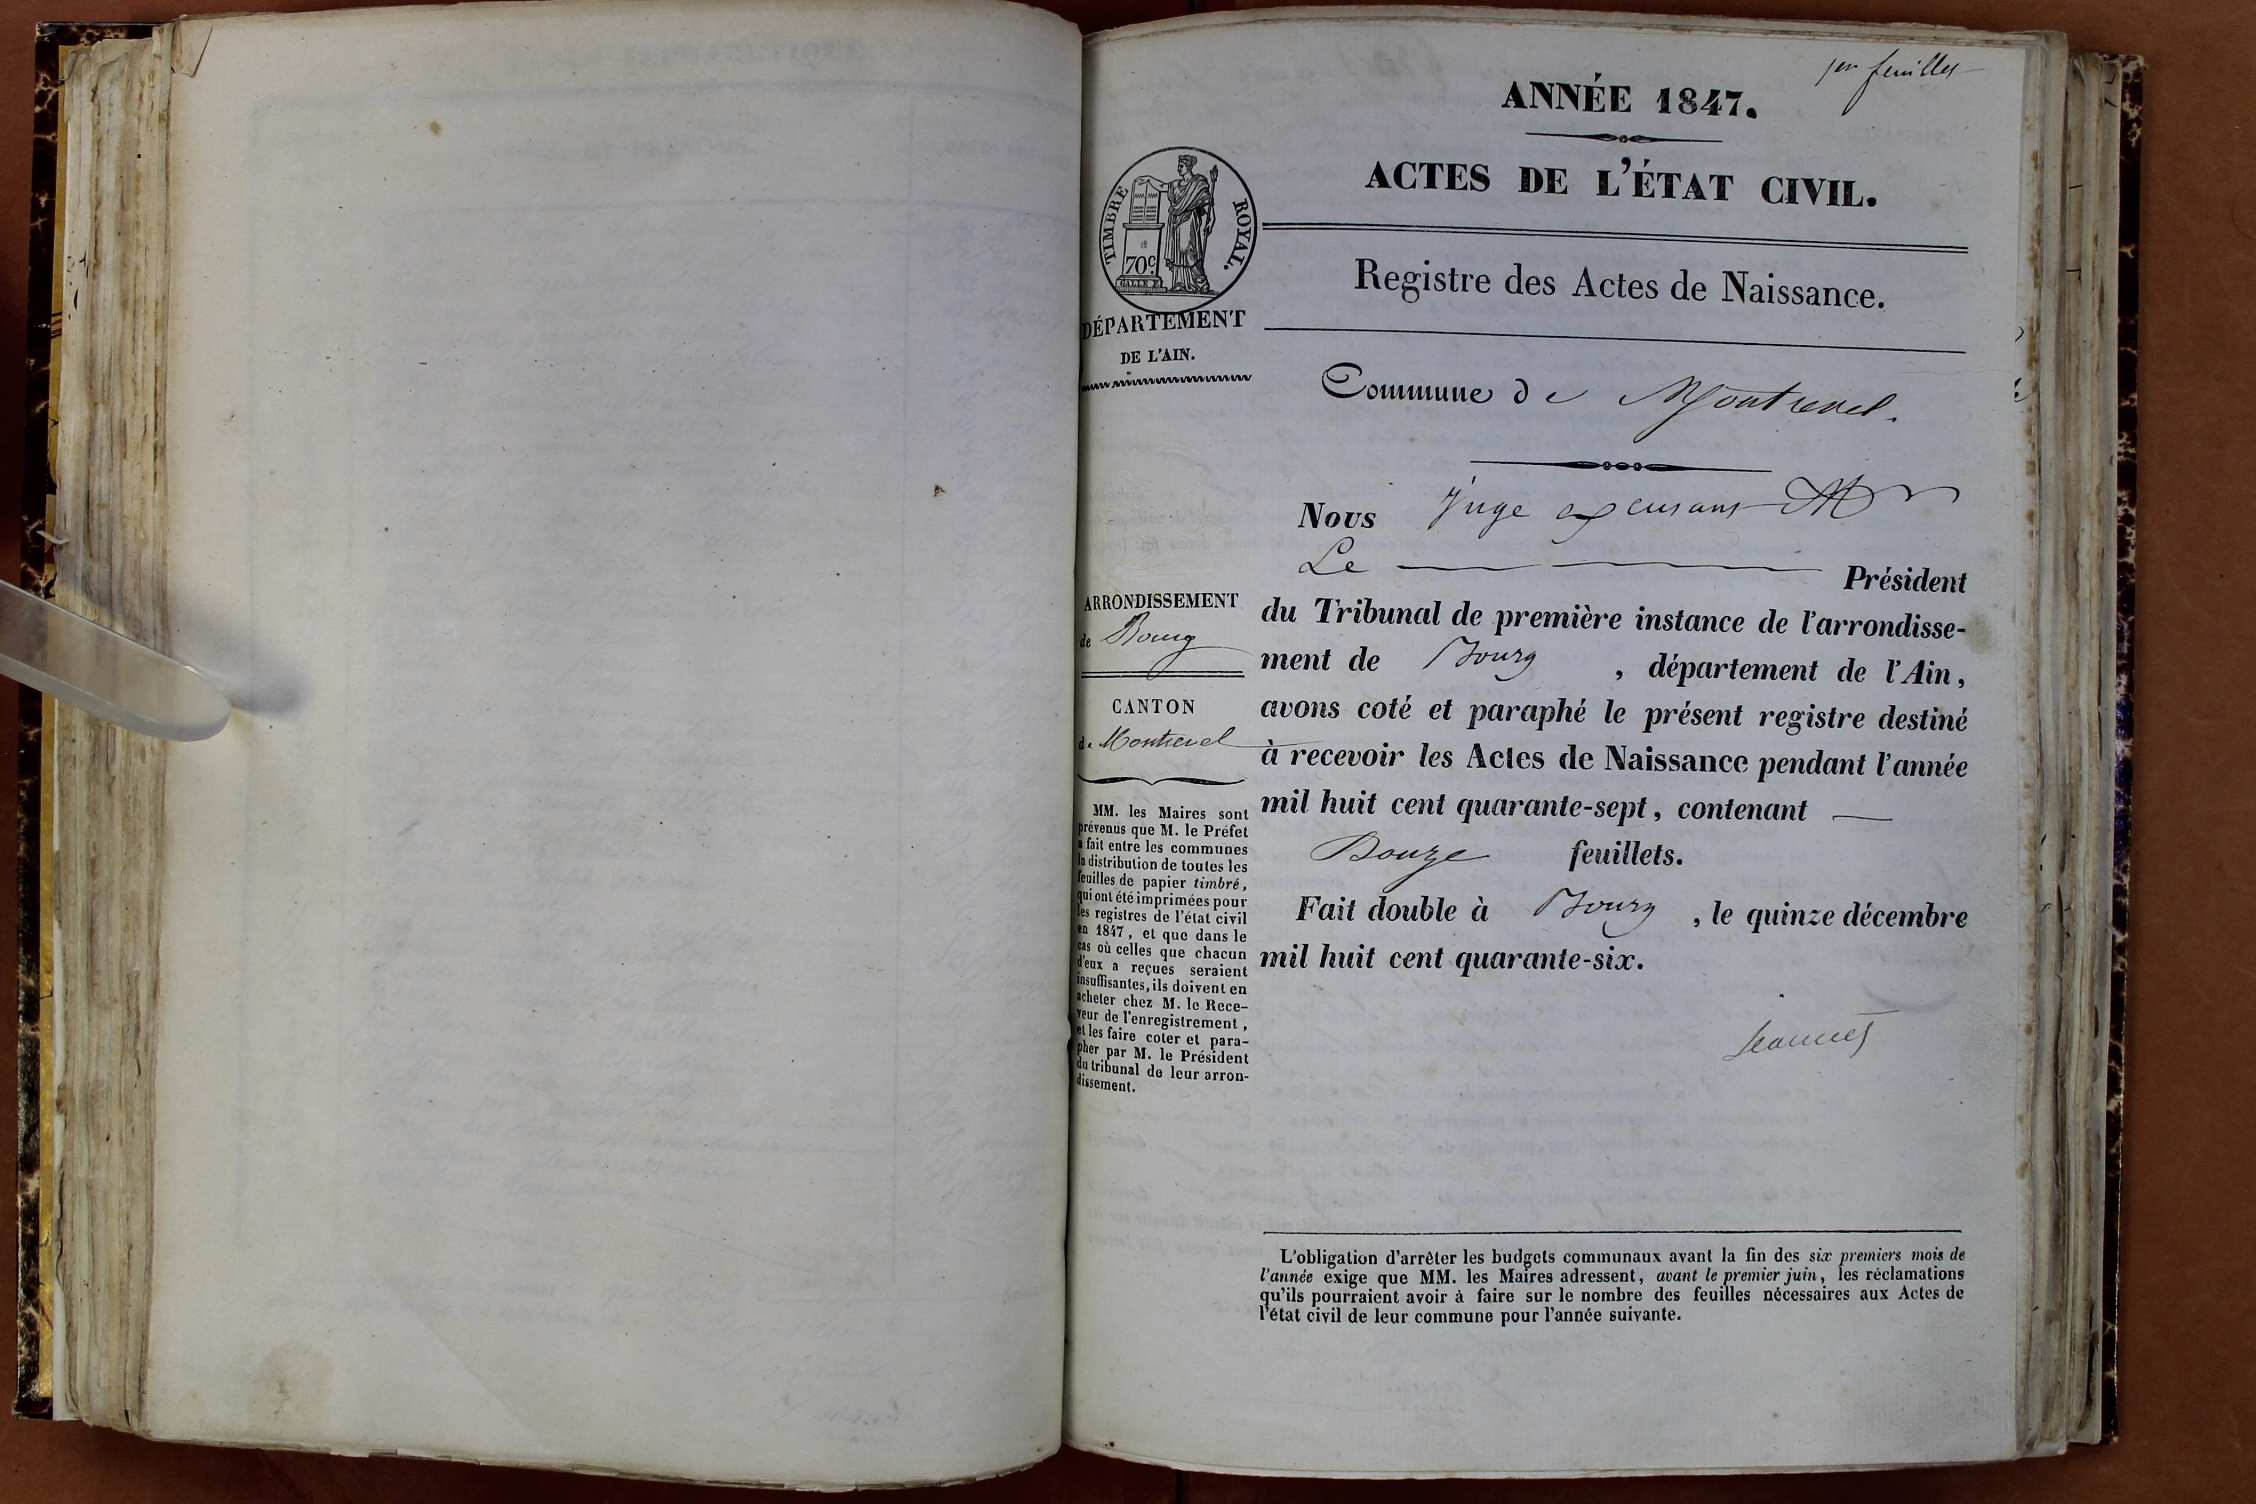 1er feuillet
ANNÉE 1847.
ACTES DE L'ÉTAT CIVIL.
TIMBRE ROYAL.
70c
Registre des Actes de Naissance.
DÉPARTEMENT
DE L'AIN.
Commune de Montrevel.
ARRONDISSEMENT
de Bourg
CANTON
de Montrevel
MM. les Maires sont
prévenus que M. le Préfet
a fait entre les communes
la distribution de toutes les
feuilles de papier timbré,
qui ont été imprimées pour
les registres de l'état civil
en 1847, et que dans le
cas où celles que chacun
d'eux a reçues seraient
insuffisantes, ils doivent en
acheter chez M. le Rece-
veur de l'enregistrement,
et les faire coter et para-
pher par M. le Président
du tribunal de leur arron-
dissement.
Nous Juge excusant Mr
Le Président
du Tribunal de première instance de l'arrondisse-
ment de Bourg, département de l'Ain,
avons coté et paraphé le présent registre destiné
à recevoir les Actes de Naissance pendant l'année
mil huit cent quarante-sept, contenant
Douze feuillets.
Fait double à Bourg, le quinze décembre
mil huit cent quarante-six.
L'obligation d'arrêter les budgets communaux avant la fin des six premiers mois de
l'année exige que MM. les Maires adressent, avant le premier juin, les réclamations
qu'ils pourraient avoir à faire sur le nombre des feuilles nécessaires aux Actes de
l'état civil de leur commune pour l'année suivante.